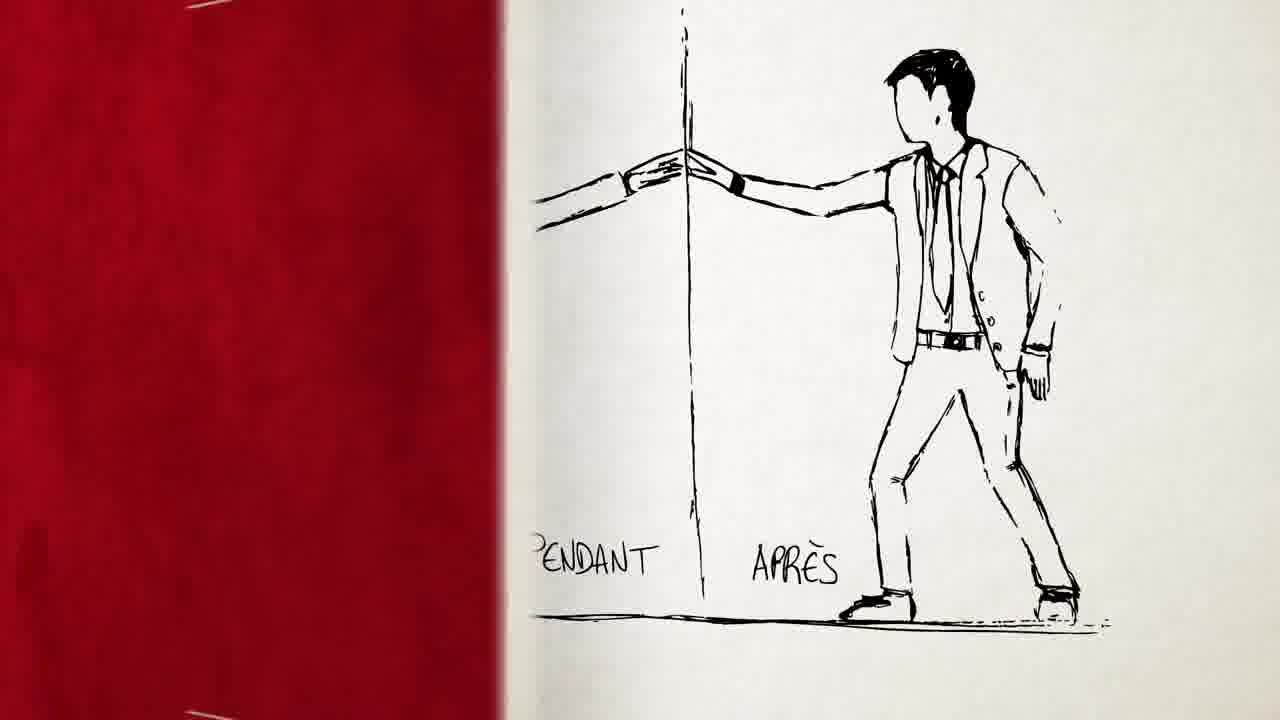 PENDANT
APRÈS